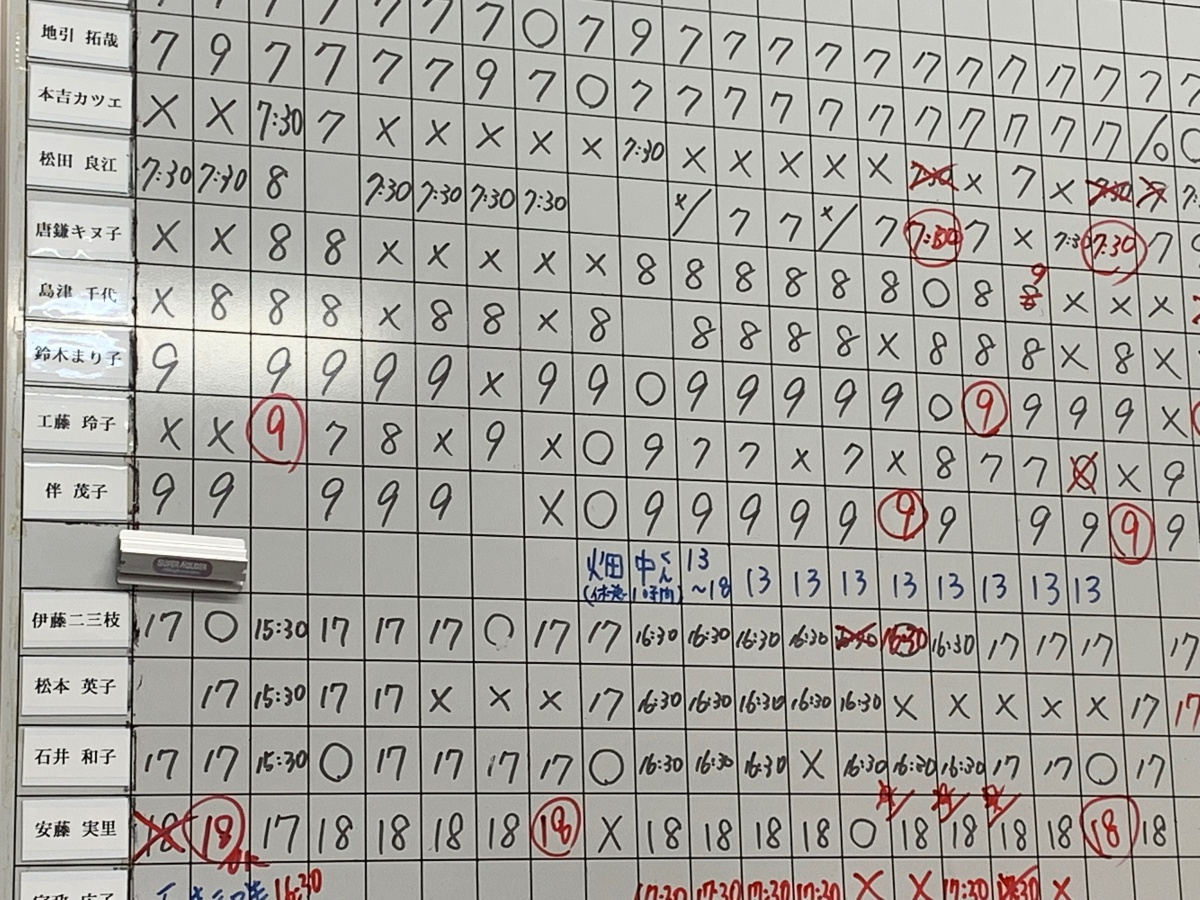 7 7 7 7 〇 7 9 7 7 7 7 7 7 7 7 7 7 7
地引 拓哉 7 9 7 7 7 7 9 7 〇 7 7 7 7 7 7 7 7 7 7 7
本吉カツエ × × 7:30 7 × × × × × 7:30 × × × × × 7:30 × 7 × 7:30 7
松田 良江 7:30 7:30 8 7:30 7:30 7:30 7:30 ×/ 7 7 ×/ 7 7:30 7 × 7:30 7:30 7
唐鎌キヌ子 × × 8 8 × × × × × 8 8 8 8 8 8 〇 8 9 8 × × ×
島津 千代 × 8 8 8 × 8 8 × 8 8 8 8 8 × 8 8 8 × 8 ×
鈴木まり子 9 9 9 9 9 × 9 9 〇 9 9 9 9 9 〇 9 9 9 9 ×
工藤 玲子 × × 9 7 8 × 9 × 〇 9 7 7 × 7 × 8 7 7 × 9
伴 茂子 9 9 9 9 9 × 〇 9 9 9 9 9 9 9 9 9 9 9
SUPER
畑中くん 13 13 13 13 13 13 13 13 13
～18
伊藤二三枝 17 〇 15:30 17 17 17 〇 17 17 16:30 16:30 16:30 16:30 16:30 16:30 16:30 17 17 17 17
松本 英子 17 15:30 17 17 × × × 17 16:30 16:30 16:30 16:30 16:30 × × × × × 17 17
石井 和子 17 17 15:30 〇 17 17 17 17 〇 16:30 16:30 16:30 × 16:30 16:30 16:30 17 17 〇 17
安藤 実里 18 18 17 18 18 18 18 18 × 18 18 18 18 〇 18 18 18 18 18 18
16:30 17:30 17:30 17:30 17:30 × × 17:30 ×